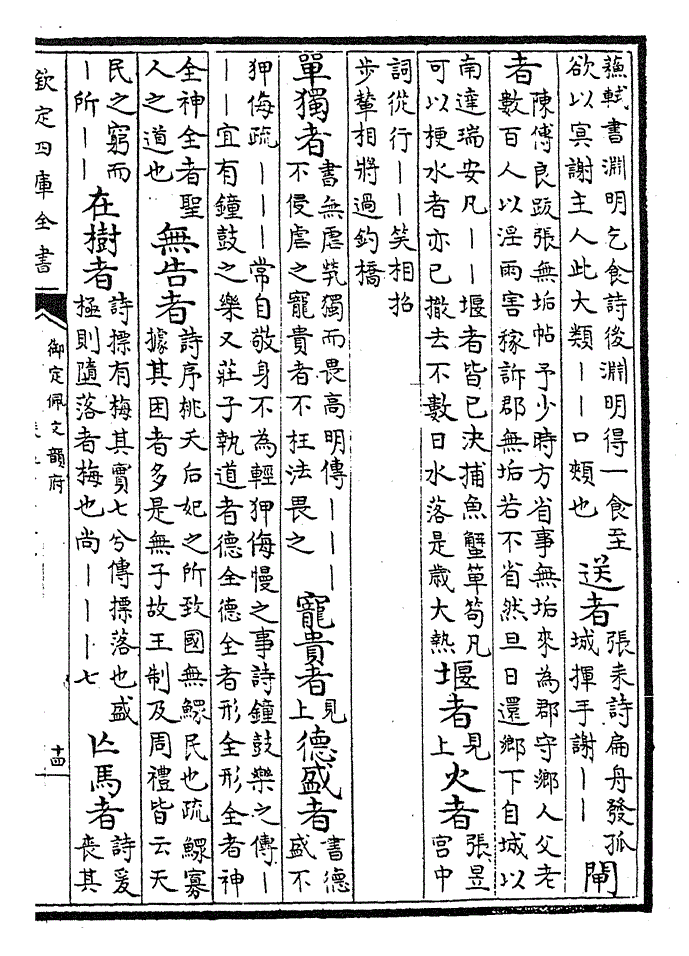 蘇軾書淵明乞食詩後淵明得一食至
欲以冥謝主人此大類丨丨口頰也
送者
張耒詩扁舟發孤
城揮手謝丨丨
閘
者
陳傅良跋張無垢帖予少時方省事無垢來為郡守鄉人父老
數百人以淫雨害稼訴郡無垢若不省然旦日還鄉下自城以
南達瑞安凡丨丨堰者皆已決捕魚蟹簞笱凡
可以梗水者亦已撤去不數日水落是歲大熟
堰者
見
上
火者
張昱
宮中
詞從行丨丨笑相招
步輦相將過釣橋
單獨者
書無虐煢獨而畏高明傳丨丨丨
不侵虐之寵貴者不枉法畏之
寵貴者
見
上
德盛者
書德
盛不
狎侮疏丨丨丨常自敬身不為輕狎侮慢之事詩鐘鼓樂之傳丨
丨丨宜有鐘鼓之樂又莊子執道者德全德全者形全形全者神
全神全者聖
人之道也
無告者
詩序桃夭后妃之所致國無鰥民也疏鰥寡
據其困者多是無子故王制及周禮皆云天
民之窮而
丨所丨丨
在樹者
詩摽有梅其實七兮傳摽落也盛
極則隨落者梅也尚丨丨丨七
亾馬者
詩爰
喪其
欽定四庫全書
御定佩文韻府
十四